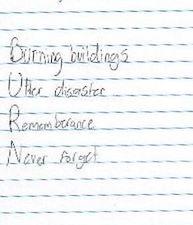 Burning buildings
Utter disaster
Rememberance
Never forget